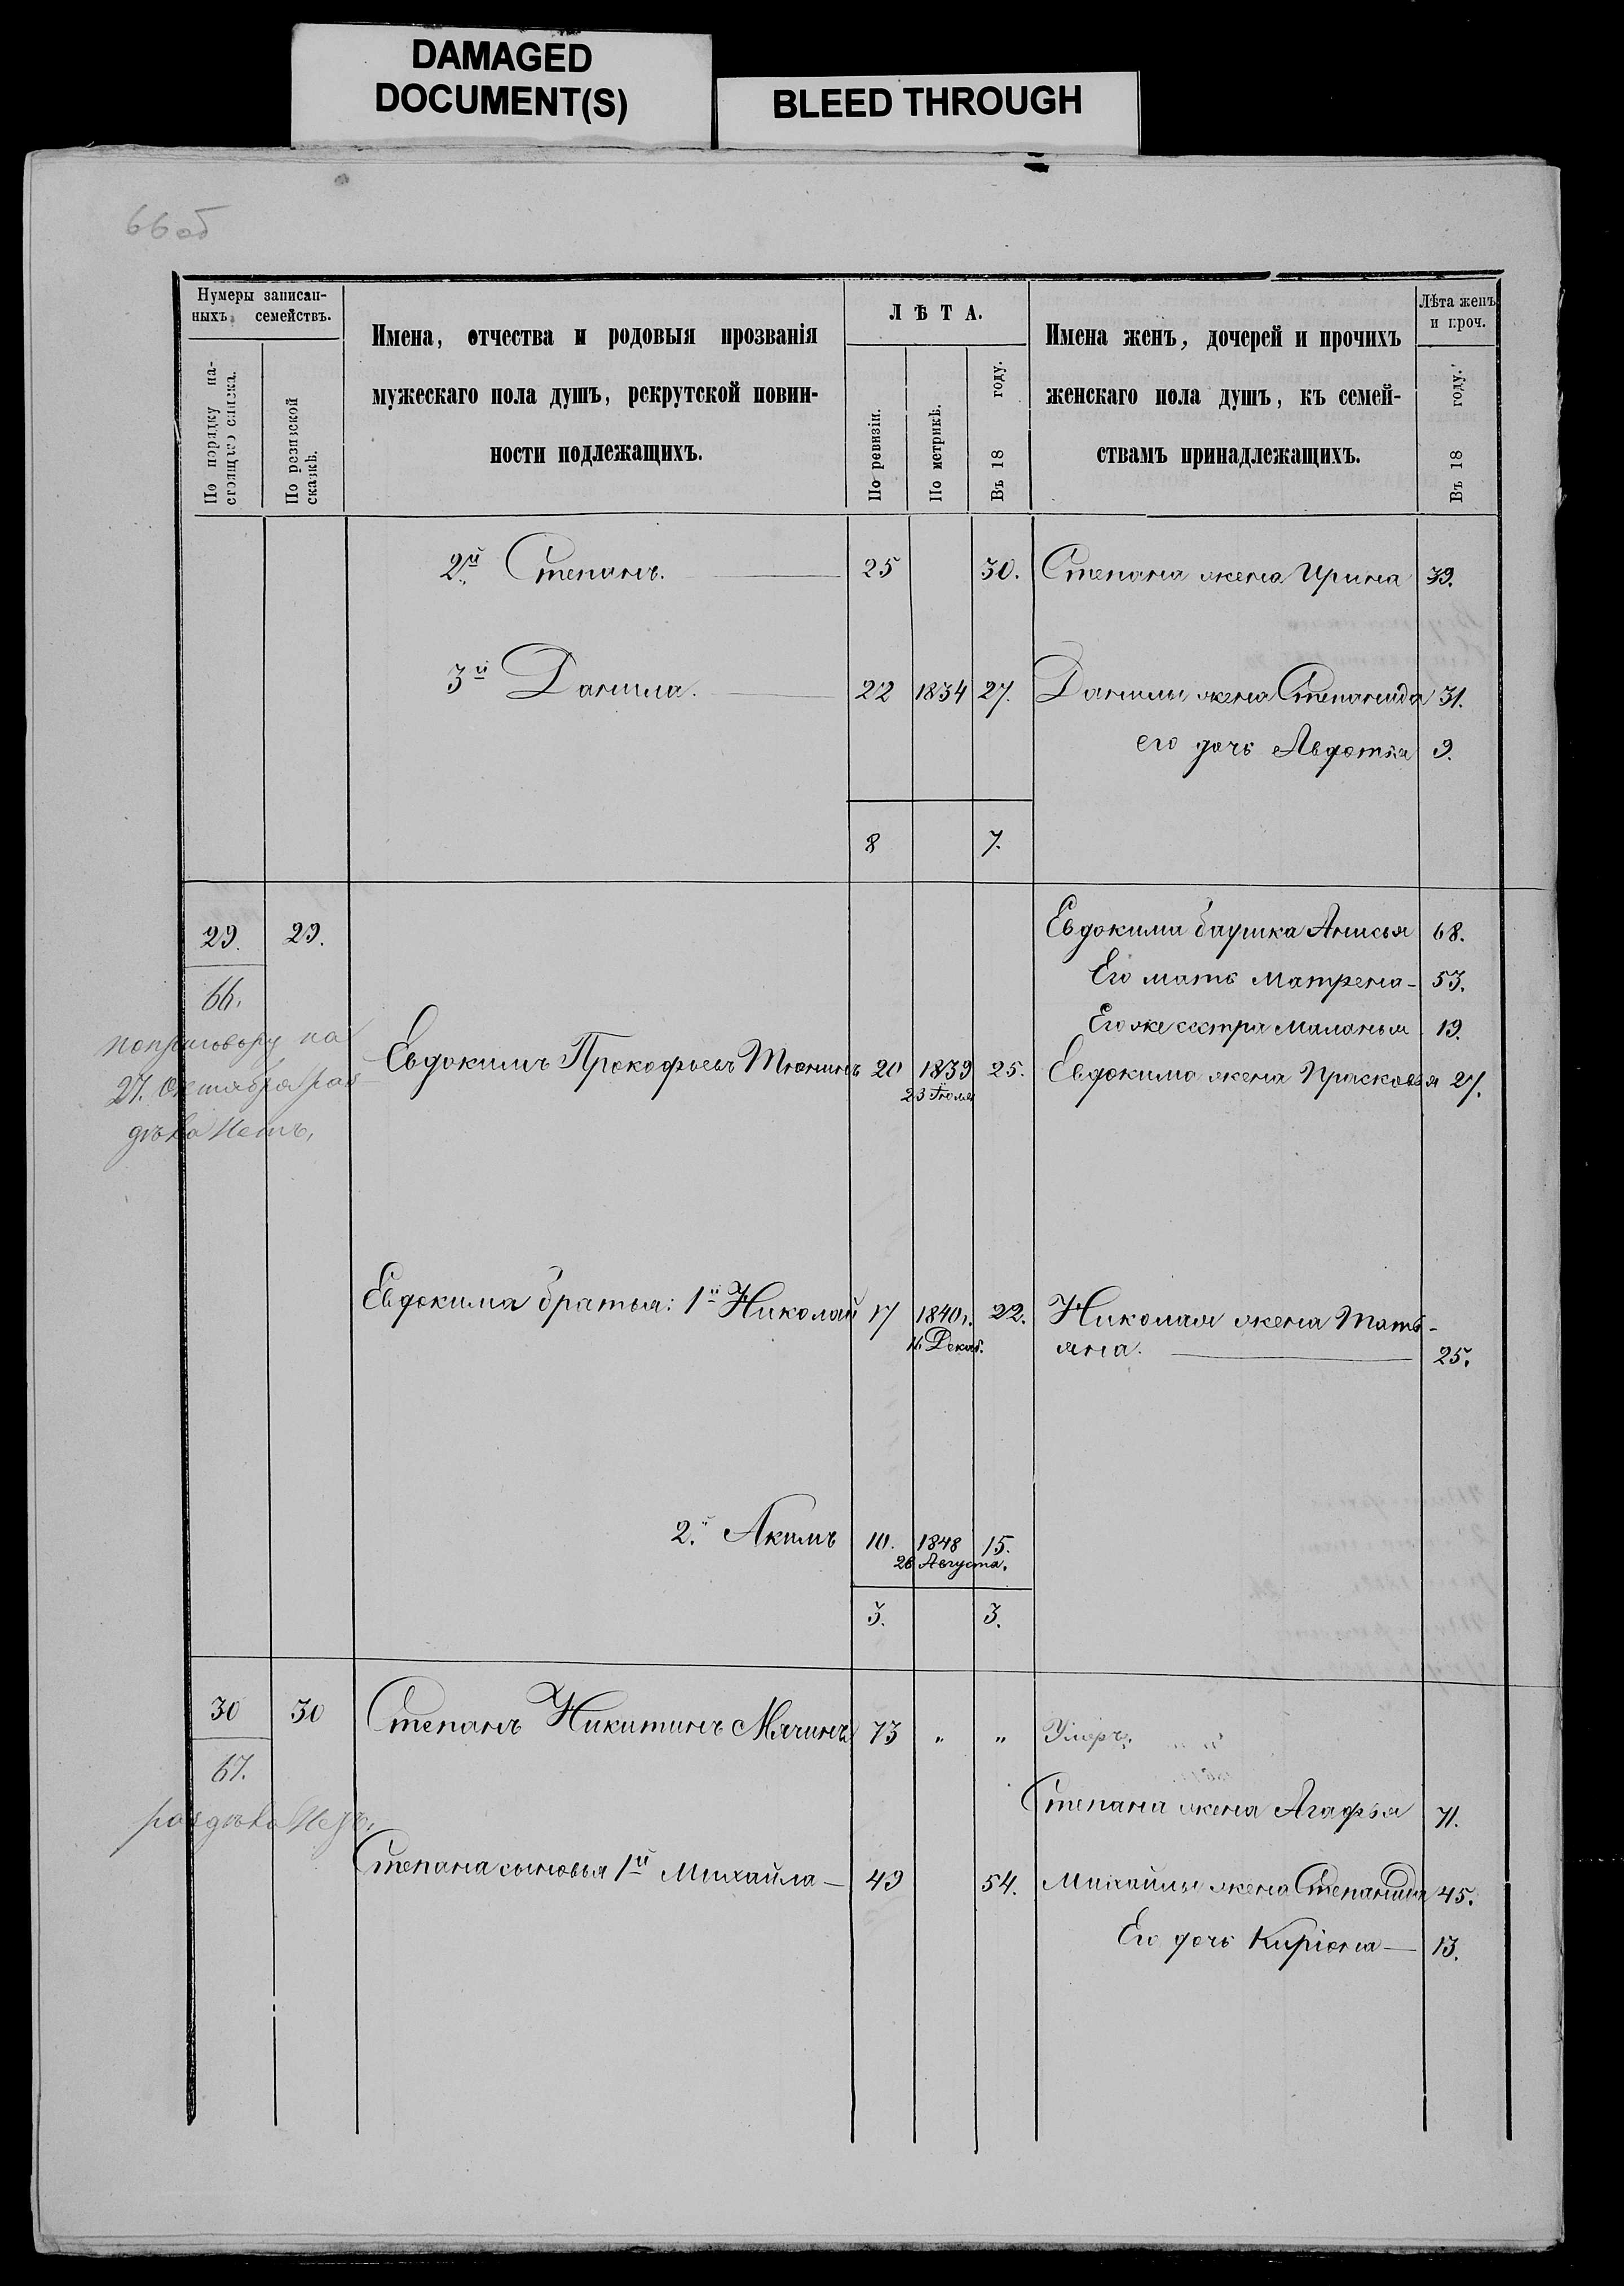 DAMAGED
DOCUMENT(S)
BLEED THROUGH
66 об
Нумеры записан-
ныхъ семействъ.
По порядку на-
стоящаго списка.
По ревизской
сказкѣ.
Имена, отчества и родовыя прозванія
мужескаго пола душъ, рекрутской повин-
ности подлежащихъ.
ЛѢТА.
По ревизіи.
По метрикѣ.
Въ 18 году.
Имена женъ, дочерей и прочихъ
женскаго пола душъ, къ семей-
ствамъ принадлежащихъ.
Лѣта женъ
и проч.
Въ 18 году.
2й Степанъ. 25 30. Степана жена Ирина 39.
3й Данила. 22 1834 27. Данилы жена Степанида 31.
его дочь Авдотья 9.
8 7.
29. 29. Евдокима баушка Анисья 68.
66. Его мать Матрена 53.
Его же сестра Маланья 19.
по приговору на
27. Октября раз
дѣла нетъ,
Евдокимъ Прокофьевъ Тюнинъ 20 1839 25. Евдокима жена Прасковья 27.
23 Іюля
Евдокима братья: 1й Николай 17 1840г. 22. Николая жена Тать-
Декаб. яна. 25.
2.й Акимъ 10. 1848 15.
26 Августа.
3. 3.
30 30 Степанъ Никитинъ Мячинъ 73 " " Умеръ.
67.
раздѣла нетъ,
Степана жена Агафья 71.
Степана сыновья 1й Михайла 49 54. Михайлы жена Степанида 45.
Его дочь Киріена 13.